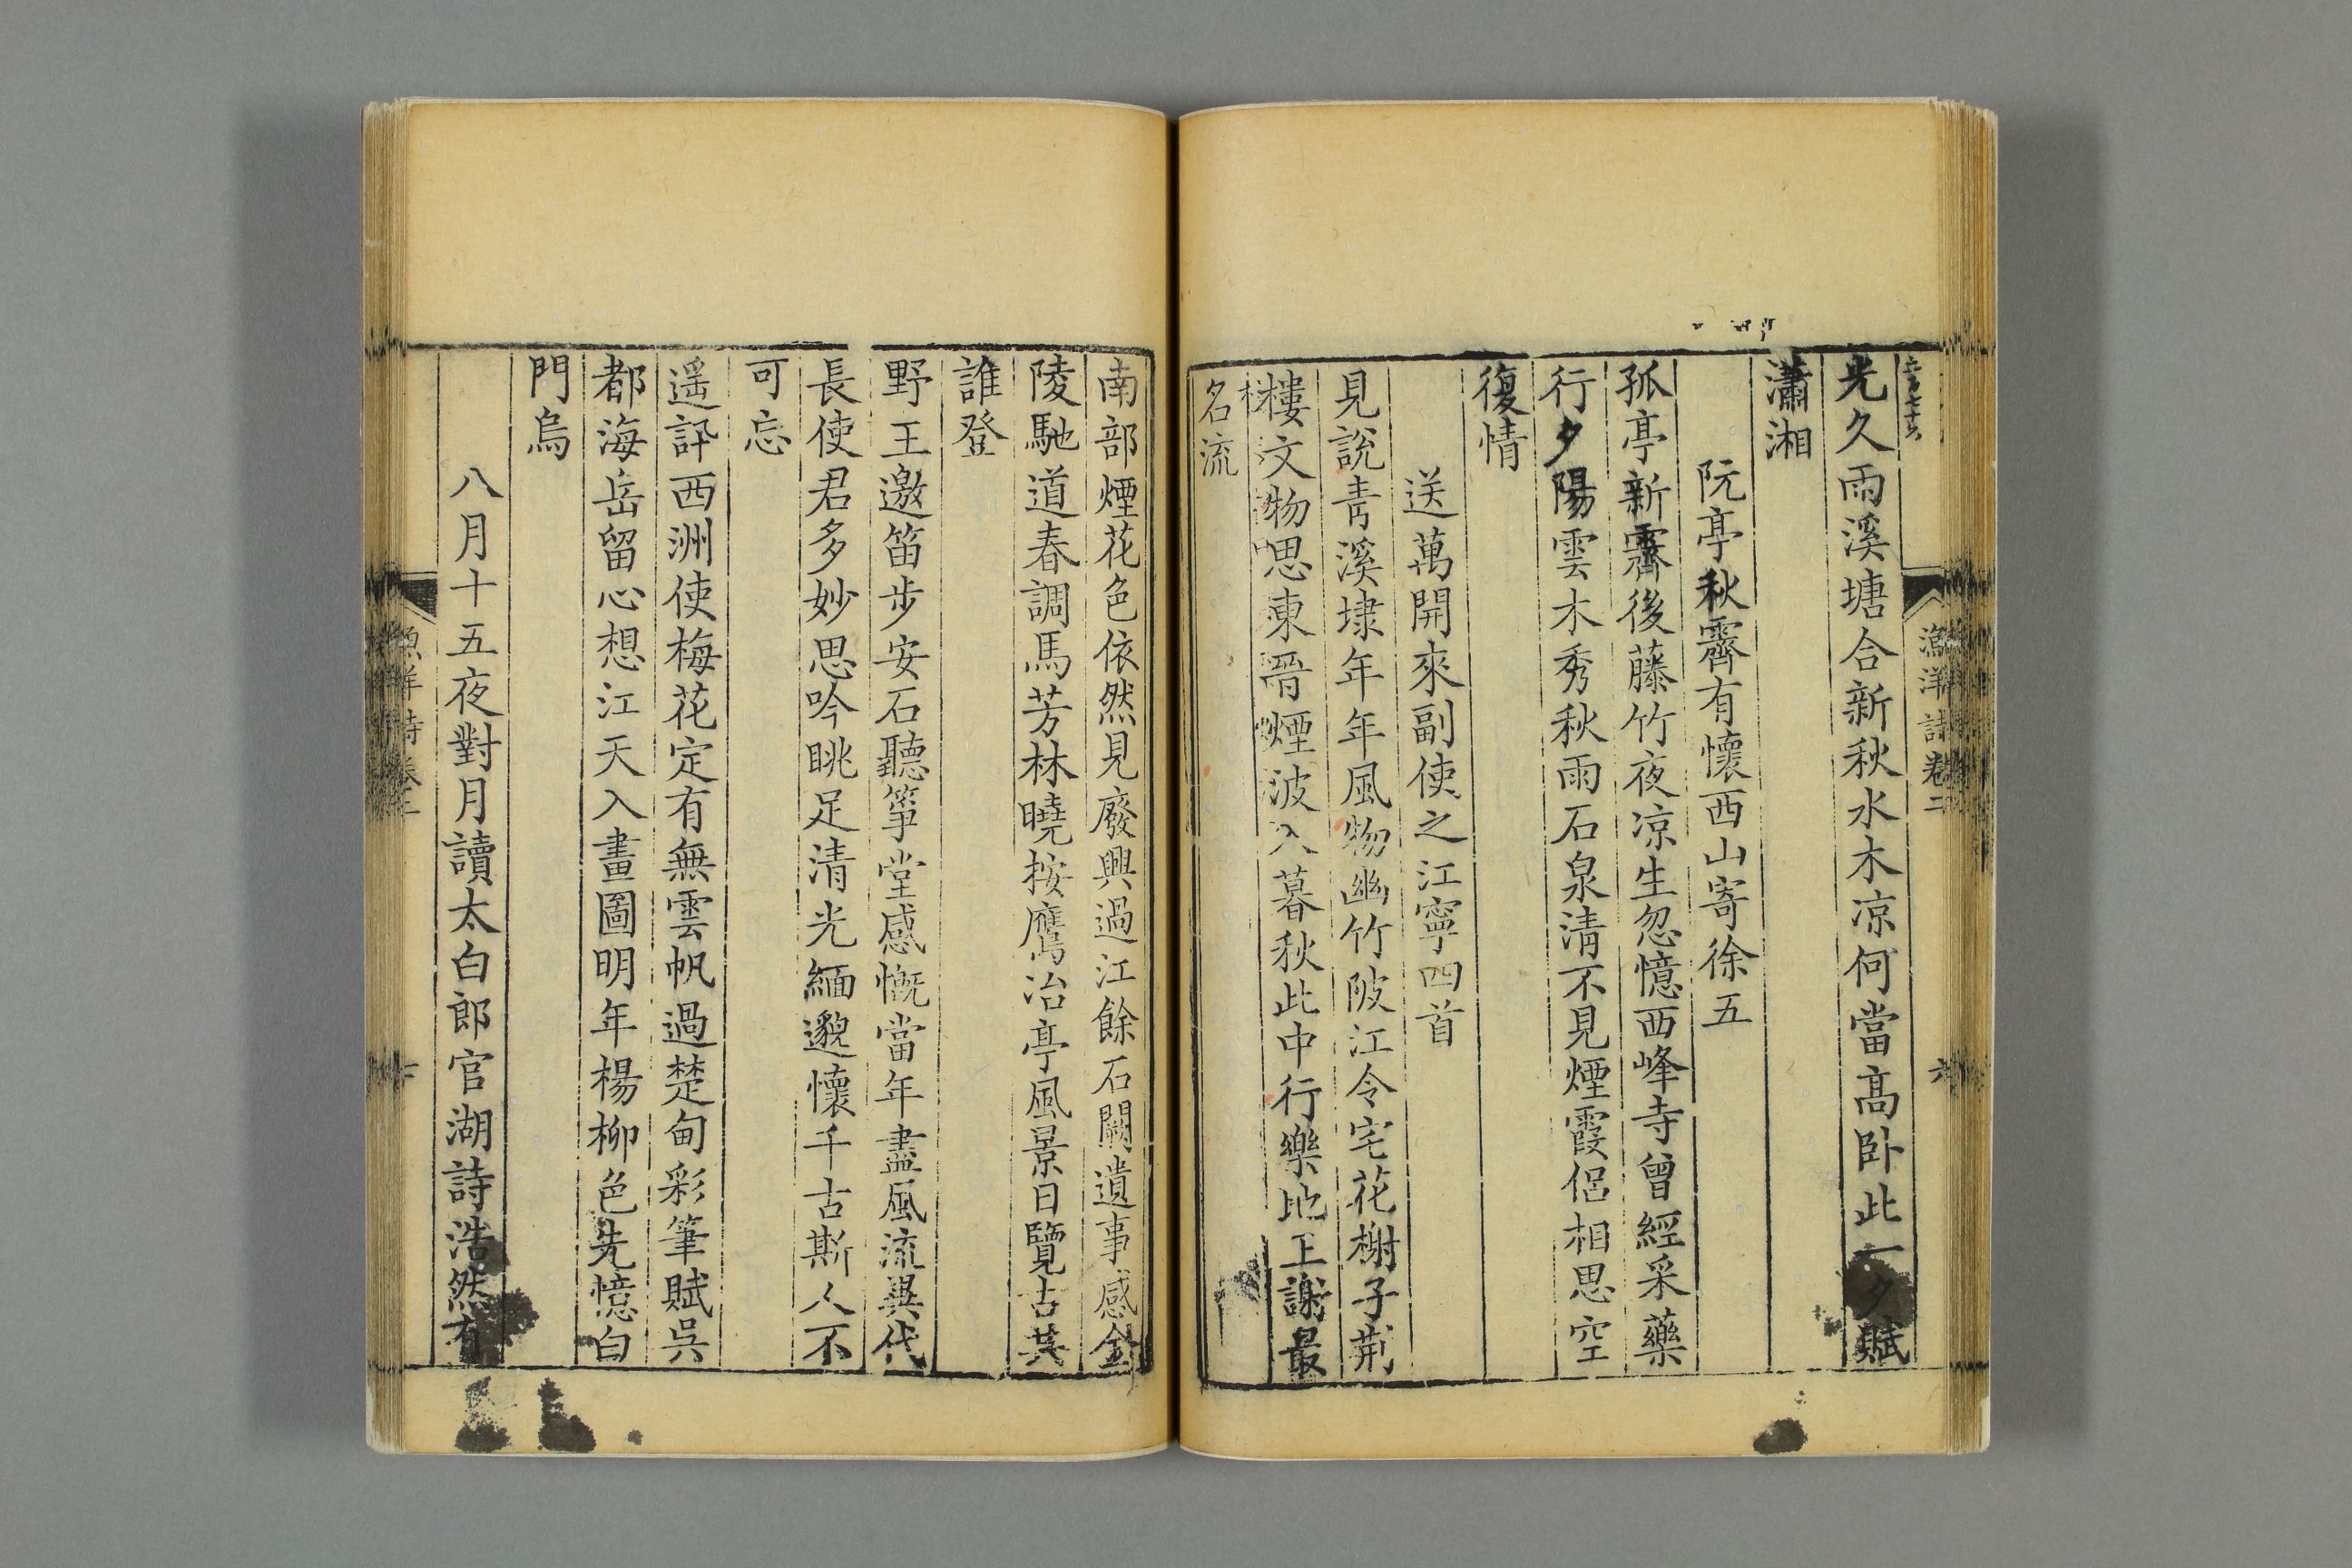 漁洋詩卷二
六
光久雨溪塘合新秋水木凉何當高卧此一夕賦
瀟湘
阮亭秋霽有懷西山寄徐五
孤亭新霽後藤竹夜凉生忽憶西峰寺曾經采藥
行夕陽雲木秀秋雨石泉清不見煙霞侶相思空
復情
送萬開來副使之江寧四首
見說青溪埭年年風物幽竹陂江令宅花榭子荆
樓文物思東晉煙波入暮秋此中行樂地王謝最
名流
南部煙花色依然見廢興過江餘石闕遺事感金
陵馳道春調馬芳林曉按鷹冶亭風景日覽古共
誰登
野王邀笛步安石聽箏堂感慨當年盡風流異代
長使君多妙思吟眺足清光緬邈懷千古斯人不
可忘
遥訊西洲使梅花定有無雲帆過楚甸彩筆賦吳
都海岳留心想江天入畫圖明年楊柳色先憶白
門烏
八月十五夜對月讀太白郎官湖詩浩然有
漁洋詩卷二
七